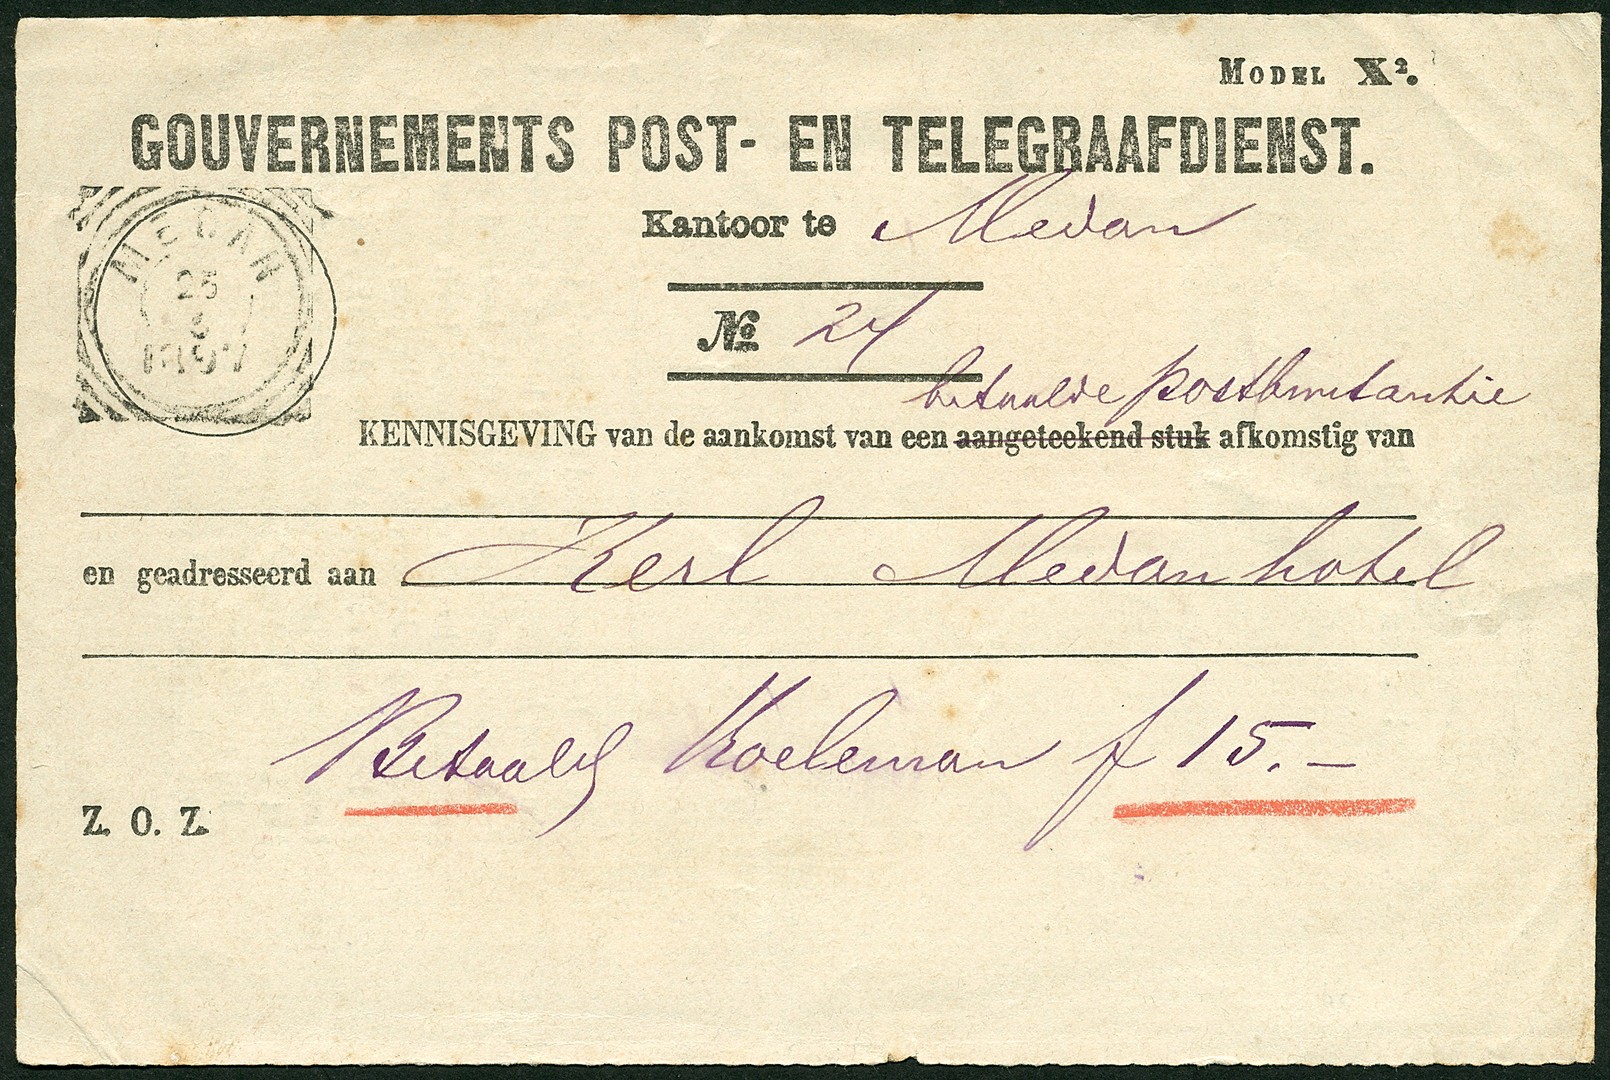 MODEL X².
GOUVERNEMENTS POST- EN TELEGRAAFDIENST.
Kantoor te Medan
MEDAN
25
1897
No 24
betaalde postkwitantie
KENNISGEVING van de aankomst van een aangeteekend stuk afkomstig van
en geadresseerd aan Kerl Medanhotel
Betaald Koeleman f 15.—
Z. O. Z.